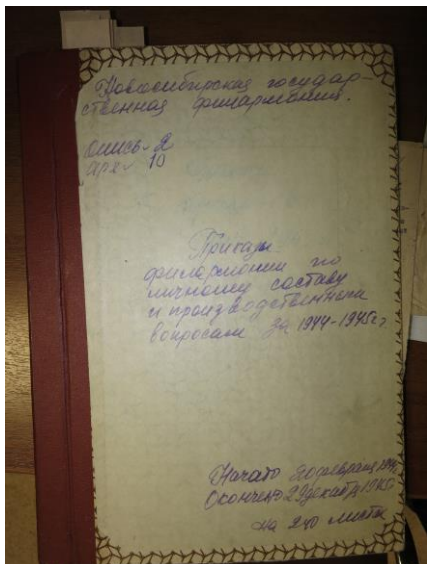 Новосибирская государ-
ственная филармония.
опись - 2
арх - 10
Приказы
филармонии по
личному составу
и производственным
вопросам за 1944-1945г.г
Начато февраля
Окончено 29 декабря
на 240 листах